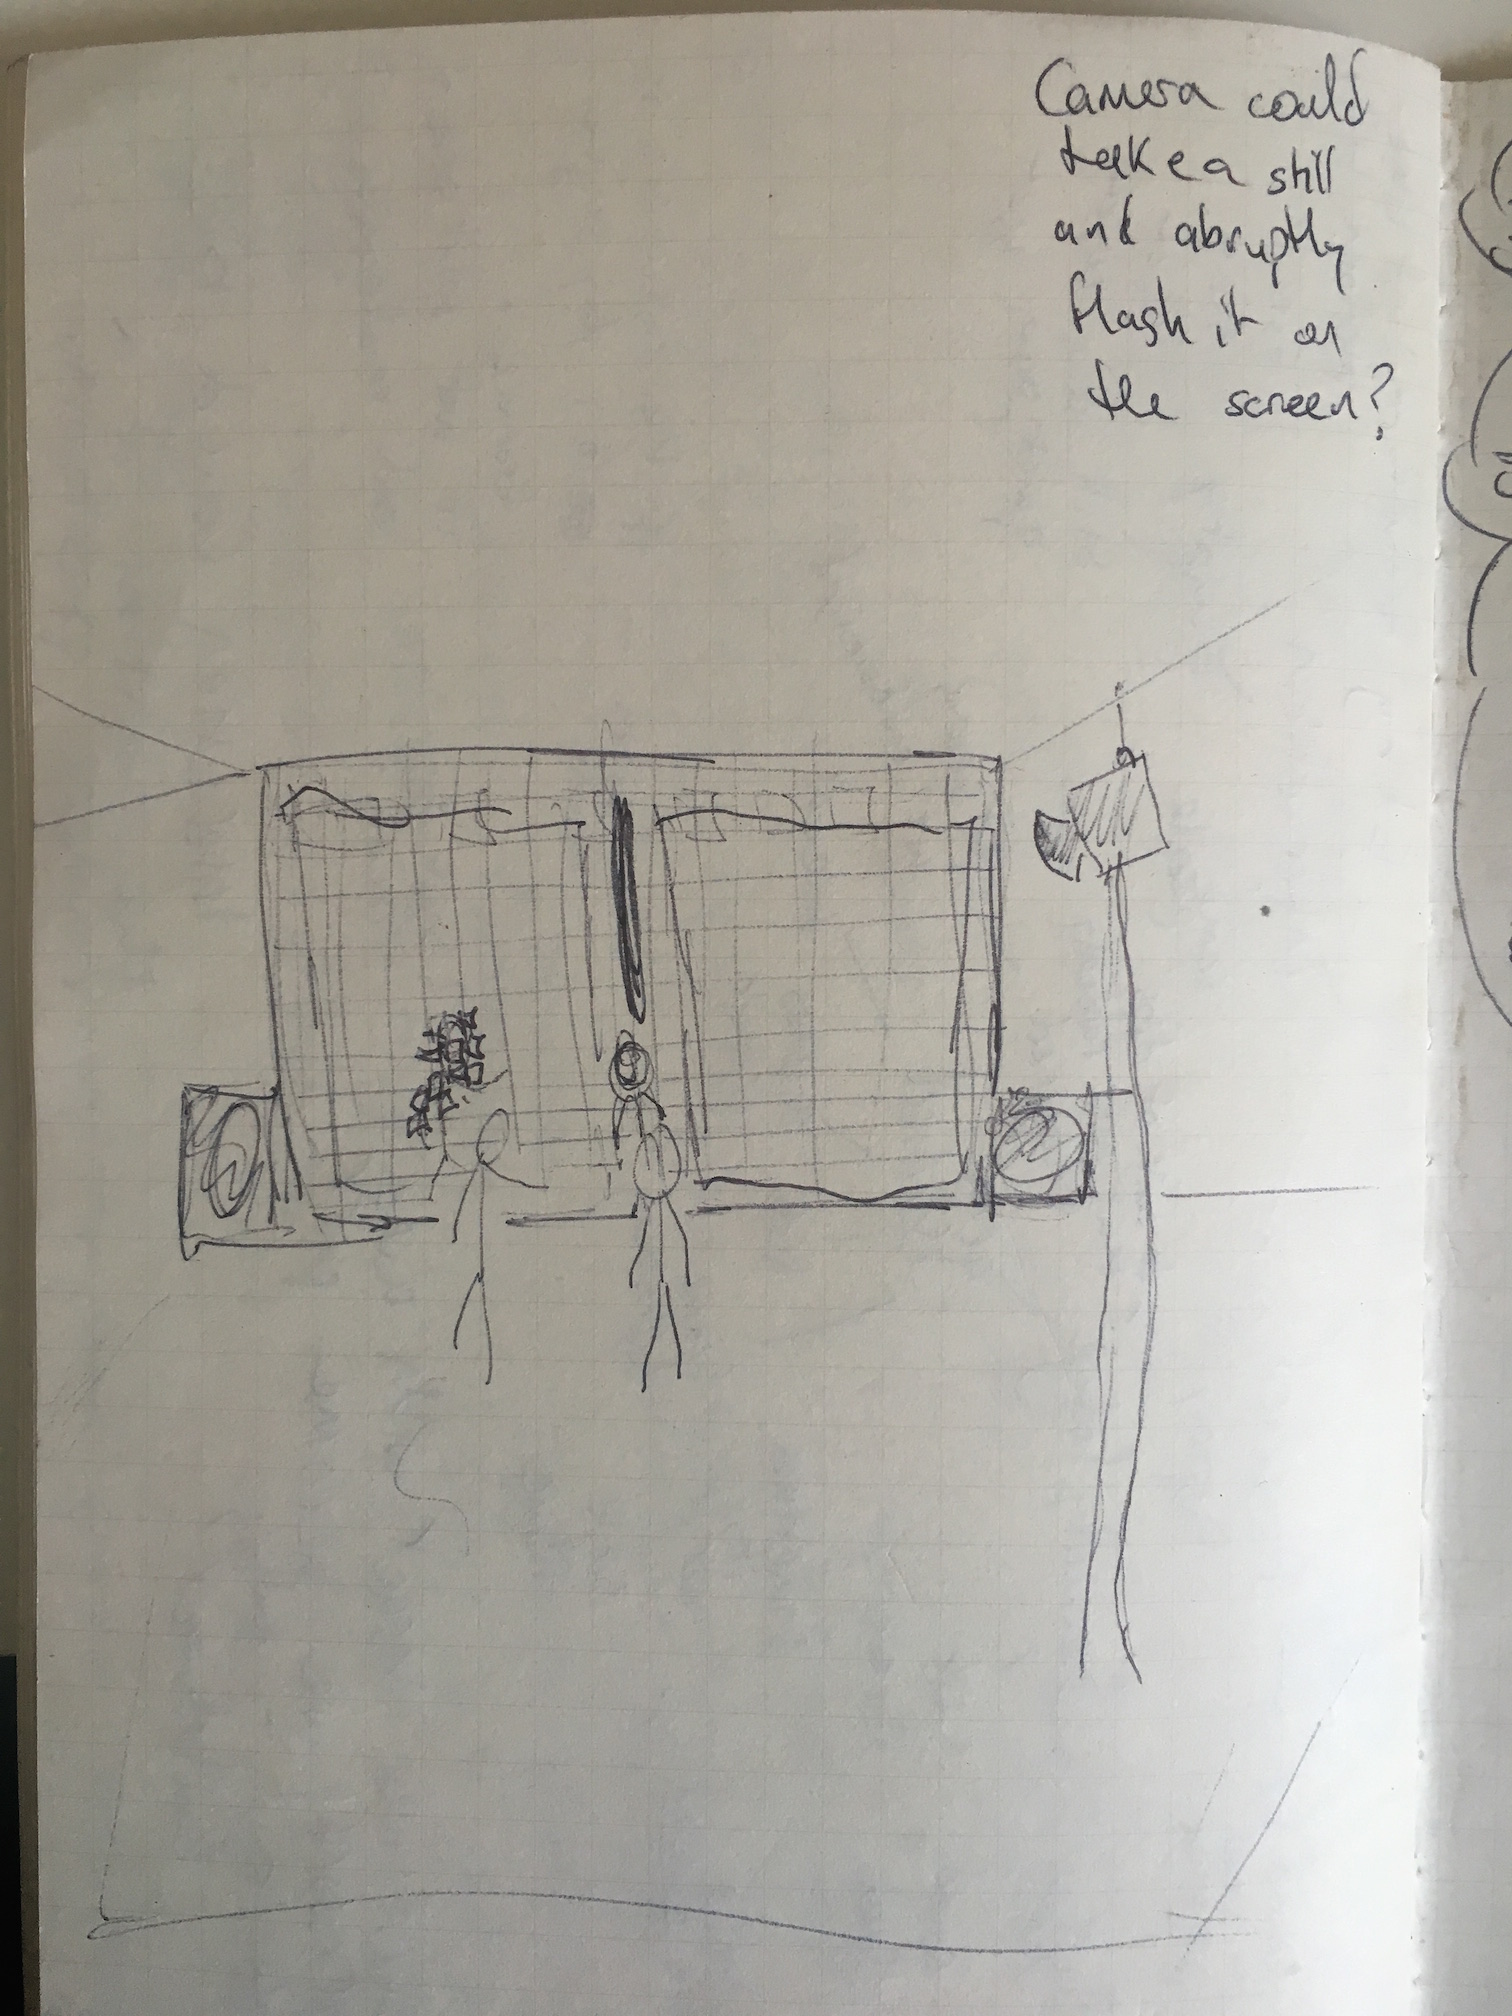 Camera could
take a still
and abruptly
flash it on
the screen?